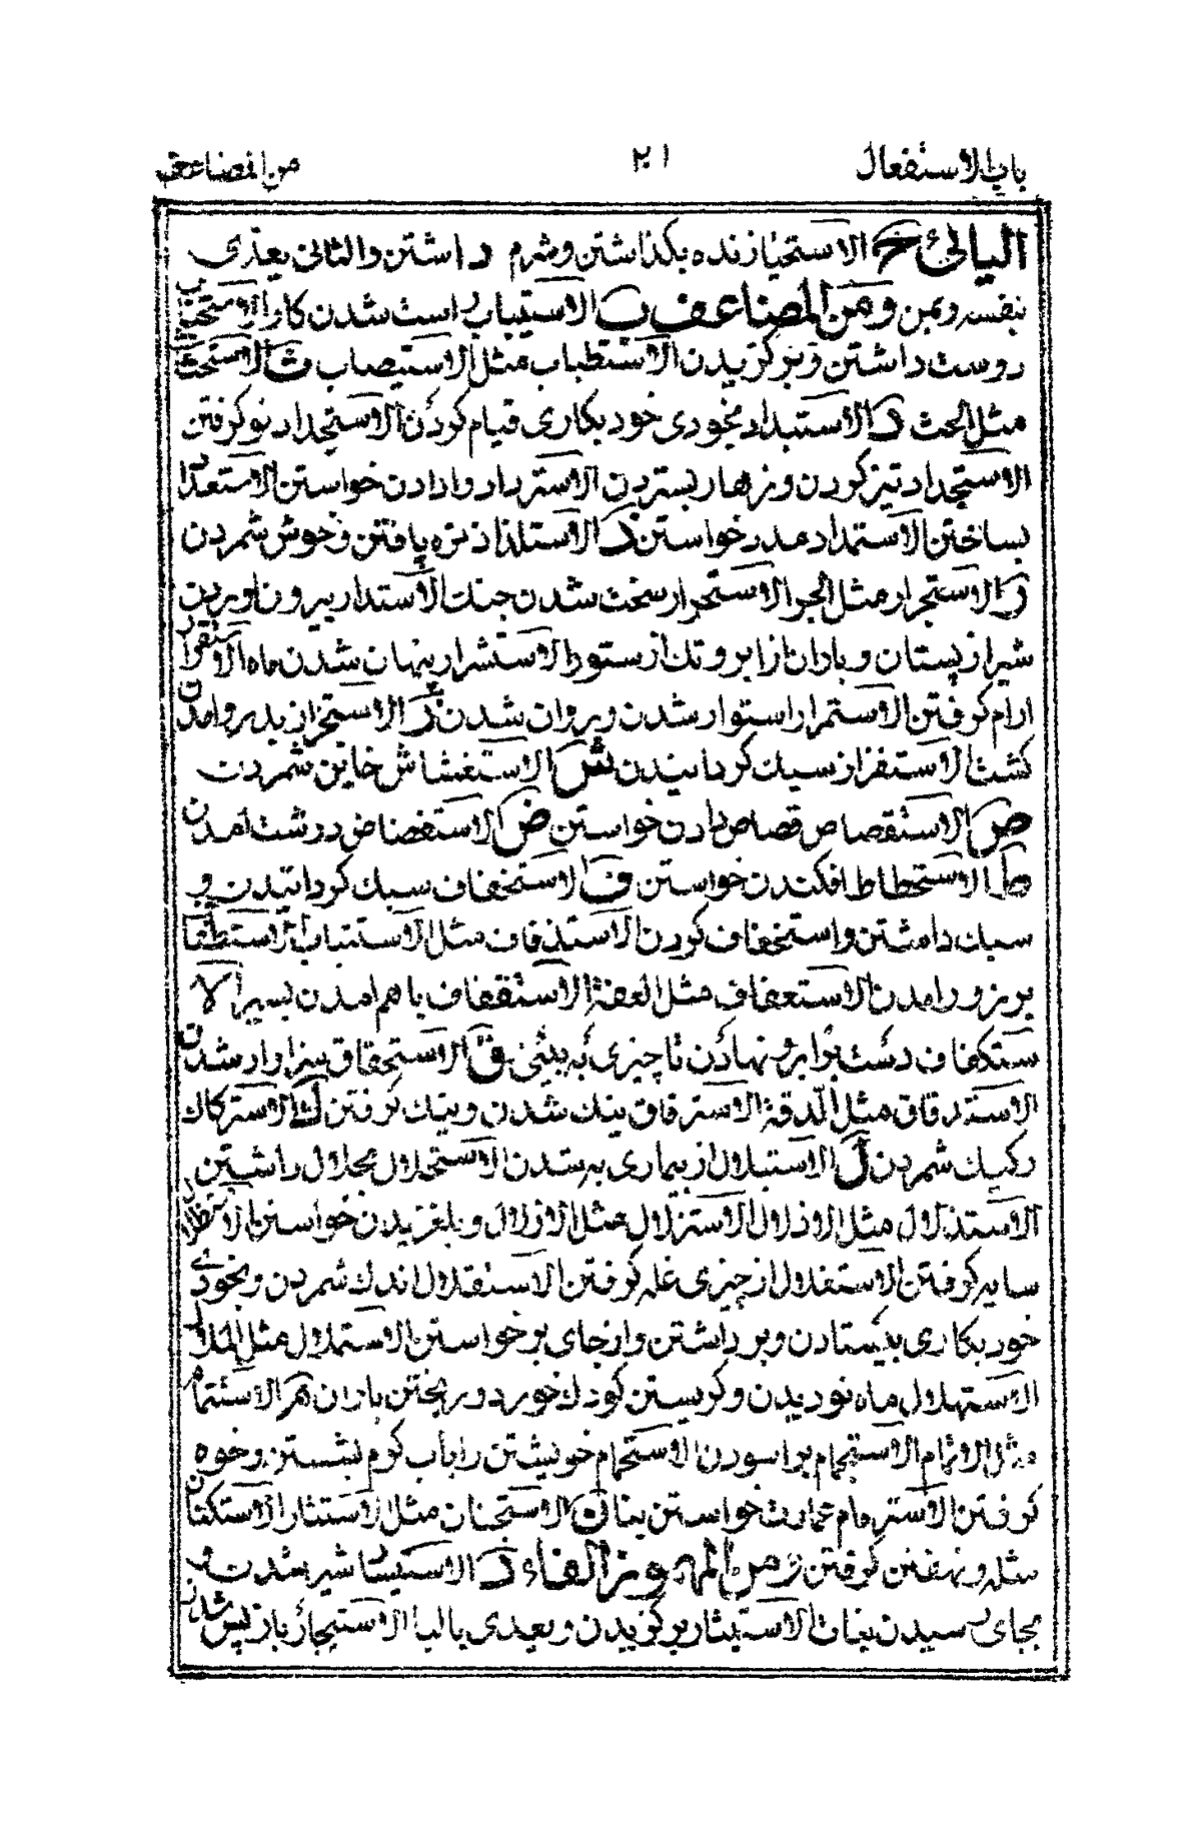 باب الاستفعال ٢٠١ من المضاعف
اليائى ح الاستحيا زنده بگذاشتن و شرم داشتن والثانى يعدى
بنفسه وبمن ومن المضاعف ب الاستيباب راست شدن كار الاستحباب
دوست داشتن و برگزيدن الاستطباب مثل الاستيصاب ث الاستحثاث
مثل الحث د الاستبداد بخودى خود بكارى قيام كردن الاستجداد نو گرفتن
الاستحداد تيز كردن و زهار بستردن الاسترداد وادادن خواستن الاستعداد
بساختن الاستمداد مدد خواستن ذ الاستلذاذ مزه يافتن و خوش شمردن
ر الاستجرار مثل الجر الاستحرار سخت شدن جنك الاستدرار بيرون اوردن
شير از پستان و باران از ابر و تك از ستور الاستسرار پنهان شدن ماه الاستقرار
ارام گرفتن الاستمرار استوار شدن و روان شدن ز الاستحزاز پديد وامدن
كشت الاستفزاز سبك گردانيدن ش الاستغشاش خاين شمردن
ص الاستقصاص قصاص دادن خواستن ض الاستفضاض درشت امدن
ط الاستحطاط افكندن خواستن ف الاستخفاف سبك گردانيدن و
سبك داشتن و استخفاف كردن الاستذفاف مثل الاستتباب الاستطفاف
بر زور امدن الاستعفاف مثل العفة الاستقفاف باهم امدن پسير الا
ستكفاف دست برابرو نهادن تا چيزى به بينى ق الاستحقاق سزاوار شدن
الاستدقاق مثل الدقة الاسترقاق تنك شدن و بنك گرفتن ك الاستركاك
ركيك شمردن ل الاستبلال از بيمارى به شدن الاستحلال بحلال داشتن
الاستذلال مثل الاذلال الاستزلال مثل الازلال و بلغزيدن خواستن الاستظلال
سايه گرفتن الاستغلال از چيزى غله گرفتن الاستقلال اندك شمردن و بخودى
خود بكارى بيستادن و برداشتن و از جاى برخواستن الاستملال مثل الملال
الاستهلال ماه نو ديدن و گريستن كودك خورد و ريختن باران م الاستتمام
مثل الاتمام الاستجمام براسودن الاستحمام خويشتن را باب گرم بشستن و خوه
گرفتن الاسترمام عمارت خواستن بنا ن الاستجنان مثل الاستتار الاستكنان
مثله و نهفتن گرفتن ومن المهموز الفاء د الاستيساد شير شدن و
بجاى رسيدن نبات الاستيثار برگزيدن ويعدى بالبا الاستيجار باز پس شدن